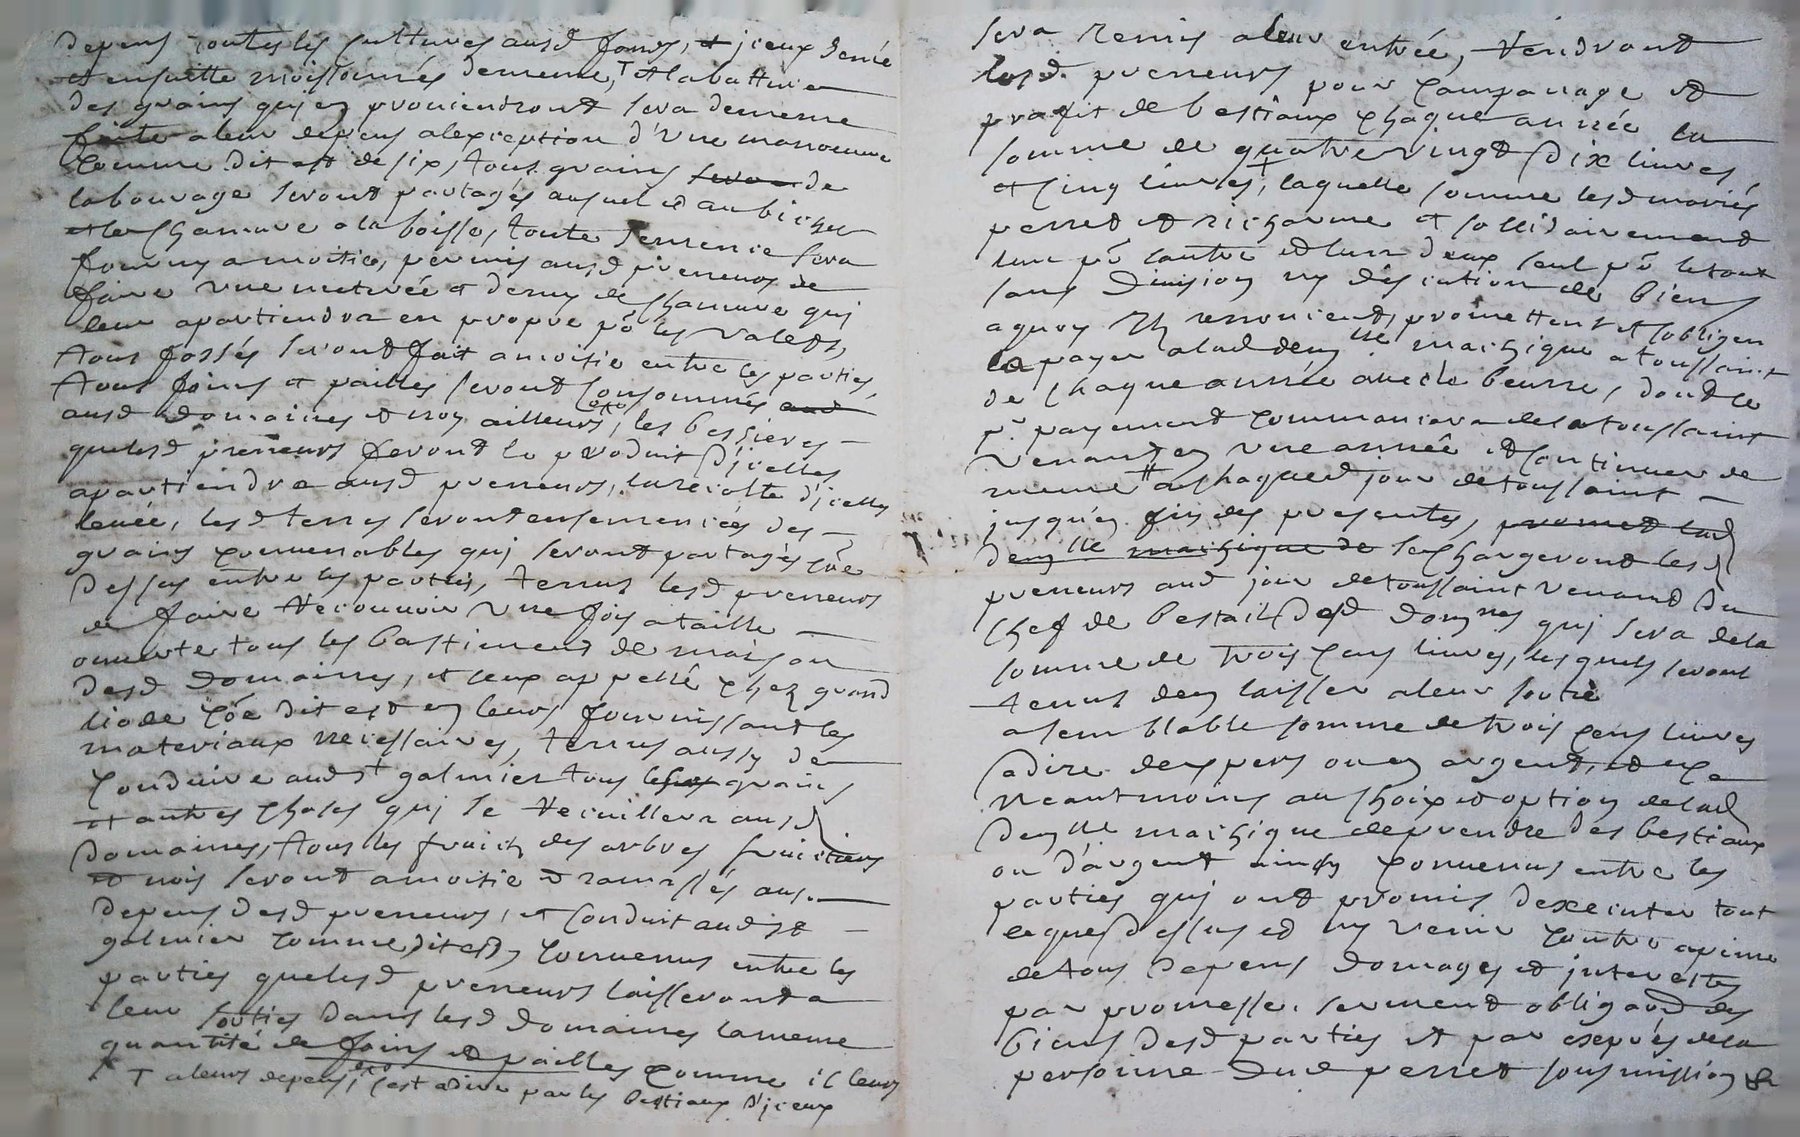 depens toutes les cultures ausd fonds, et iceux semé
et ensuitte moissonnés demême, T et la batture
des grains quj en proviendront sera demême
faite a leur depens alexception d'une manoeuvre
comme dit est de six, tous grains de
labourage seront partagés ausuel et au bichet
et le chanvre a la boisse, toute semence sera
fourny a moitié, permis ausd preneurs de
faire une meterée et demy de chanvre quj
leur apartiendra en propre pō les valets,
tous fossés seront fait a moitié entre les parties,
tous foins et pailles seront consommés
ausd domaines et non ailleurs, les
quelesd preneurs feront le produit d'jcelles
apartiendra ausd preneurs, la recolte d'jcelles
levée, lesd terres seront ensemencées des
grains convenables quj seront partagés cōe
dessus entre les parties, tenus lesd preneurs
de faire recouvrir une fois a taille
ouverte tous les bastiments de maison
desd domaines, et ceux appellé chez grand
cōe dit est en leurs fournissant les
materiaux necessaires, tenus aussy de
conduire aud st galmier tous les grains
et autres choses quj se recuillera ausd
domaines, tous les fruits des arbres fruitiers
et nois seront a moitié et ramassés aus
depens desd preneurs, et conduit aud st
galmier comme dit est, convenus entre les
parties quelesd preneurs laisseront a
leur sorties dans lesd domaines la meme
quantité de foins et pailles comme il leurs
T a leurs depens, c'est adire par les bestiaux d'jceux
sera remis a leur entrée, rendront
lesd. preneurs pour et
profit de bestiaux chaque année la
somme de quatre vingt dix livres
et cinq livres, laquelle somme lesd mariés
perret et richarme et sollidairement
lun pō lautre et lun deux seul pō letout
sans division ny discution de biens
aquoy ils renoncent, promettent et sobligen
la payer a lad demlle machique a toussaint
de chaque année avec le beurre, dont le
pr payement commancera de la toussaint
venant en une année et continuer de
meme a chaqued jour de toussaint
jusqu'en fin des presentes, promet lad
demlle machique de se chargeront lesd
preneurs aud jour de toussaint venant du
chef de bestail desd domnes quj sera dela
somme de trois cens livres, lesquels seront
tenus den laisser a leur sortie
asemblable somme de trois cens livres
adire despers ou en argent, et ce
neantmoins au choix et option de lad
demlle machique de prendre des bestiaux
ou d'argent ainsy convenus entre les
parties quj ont promis d'executer tout
ceque dessus et ny venir contre a peine
de tous depens domages et interestes
par promesse, serment obligaōn des
biens desd parties et par exprés dela
personne dud perret soumission &